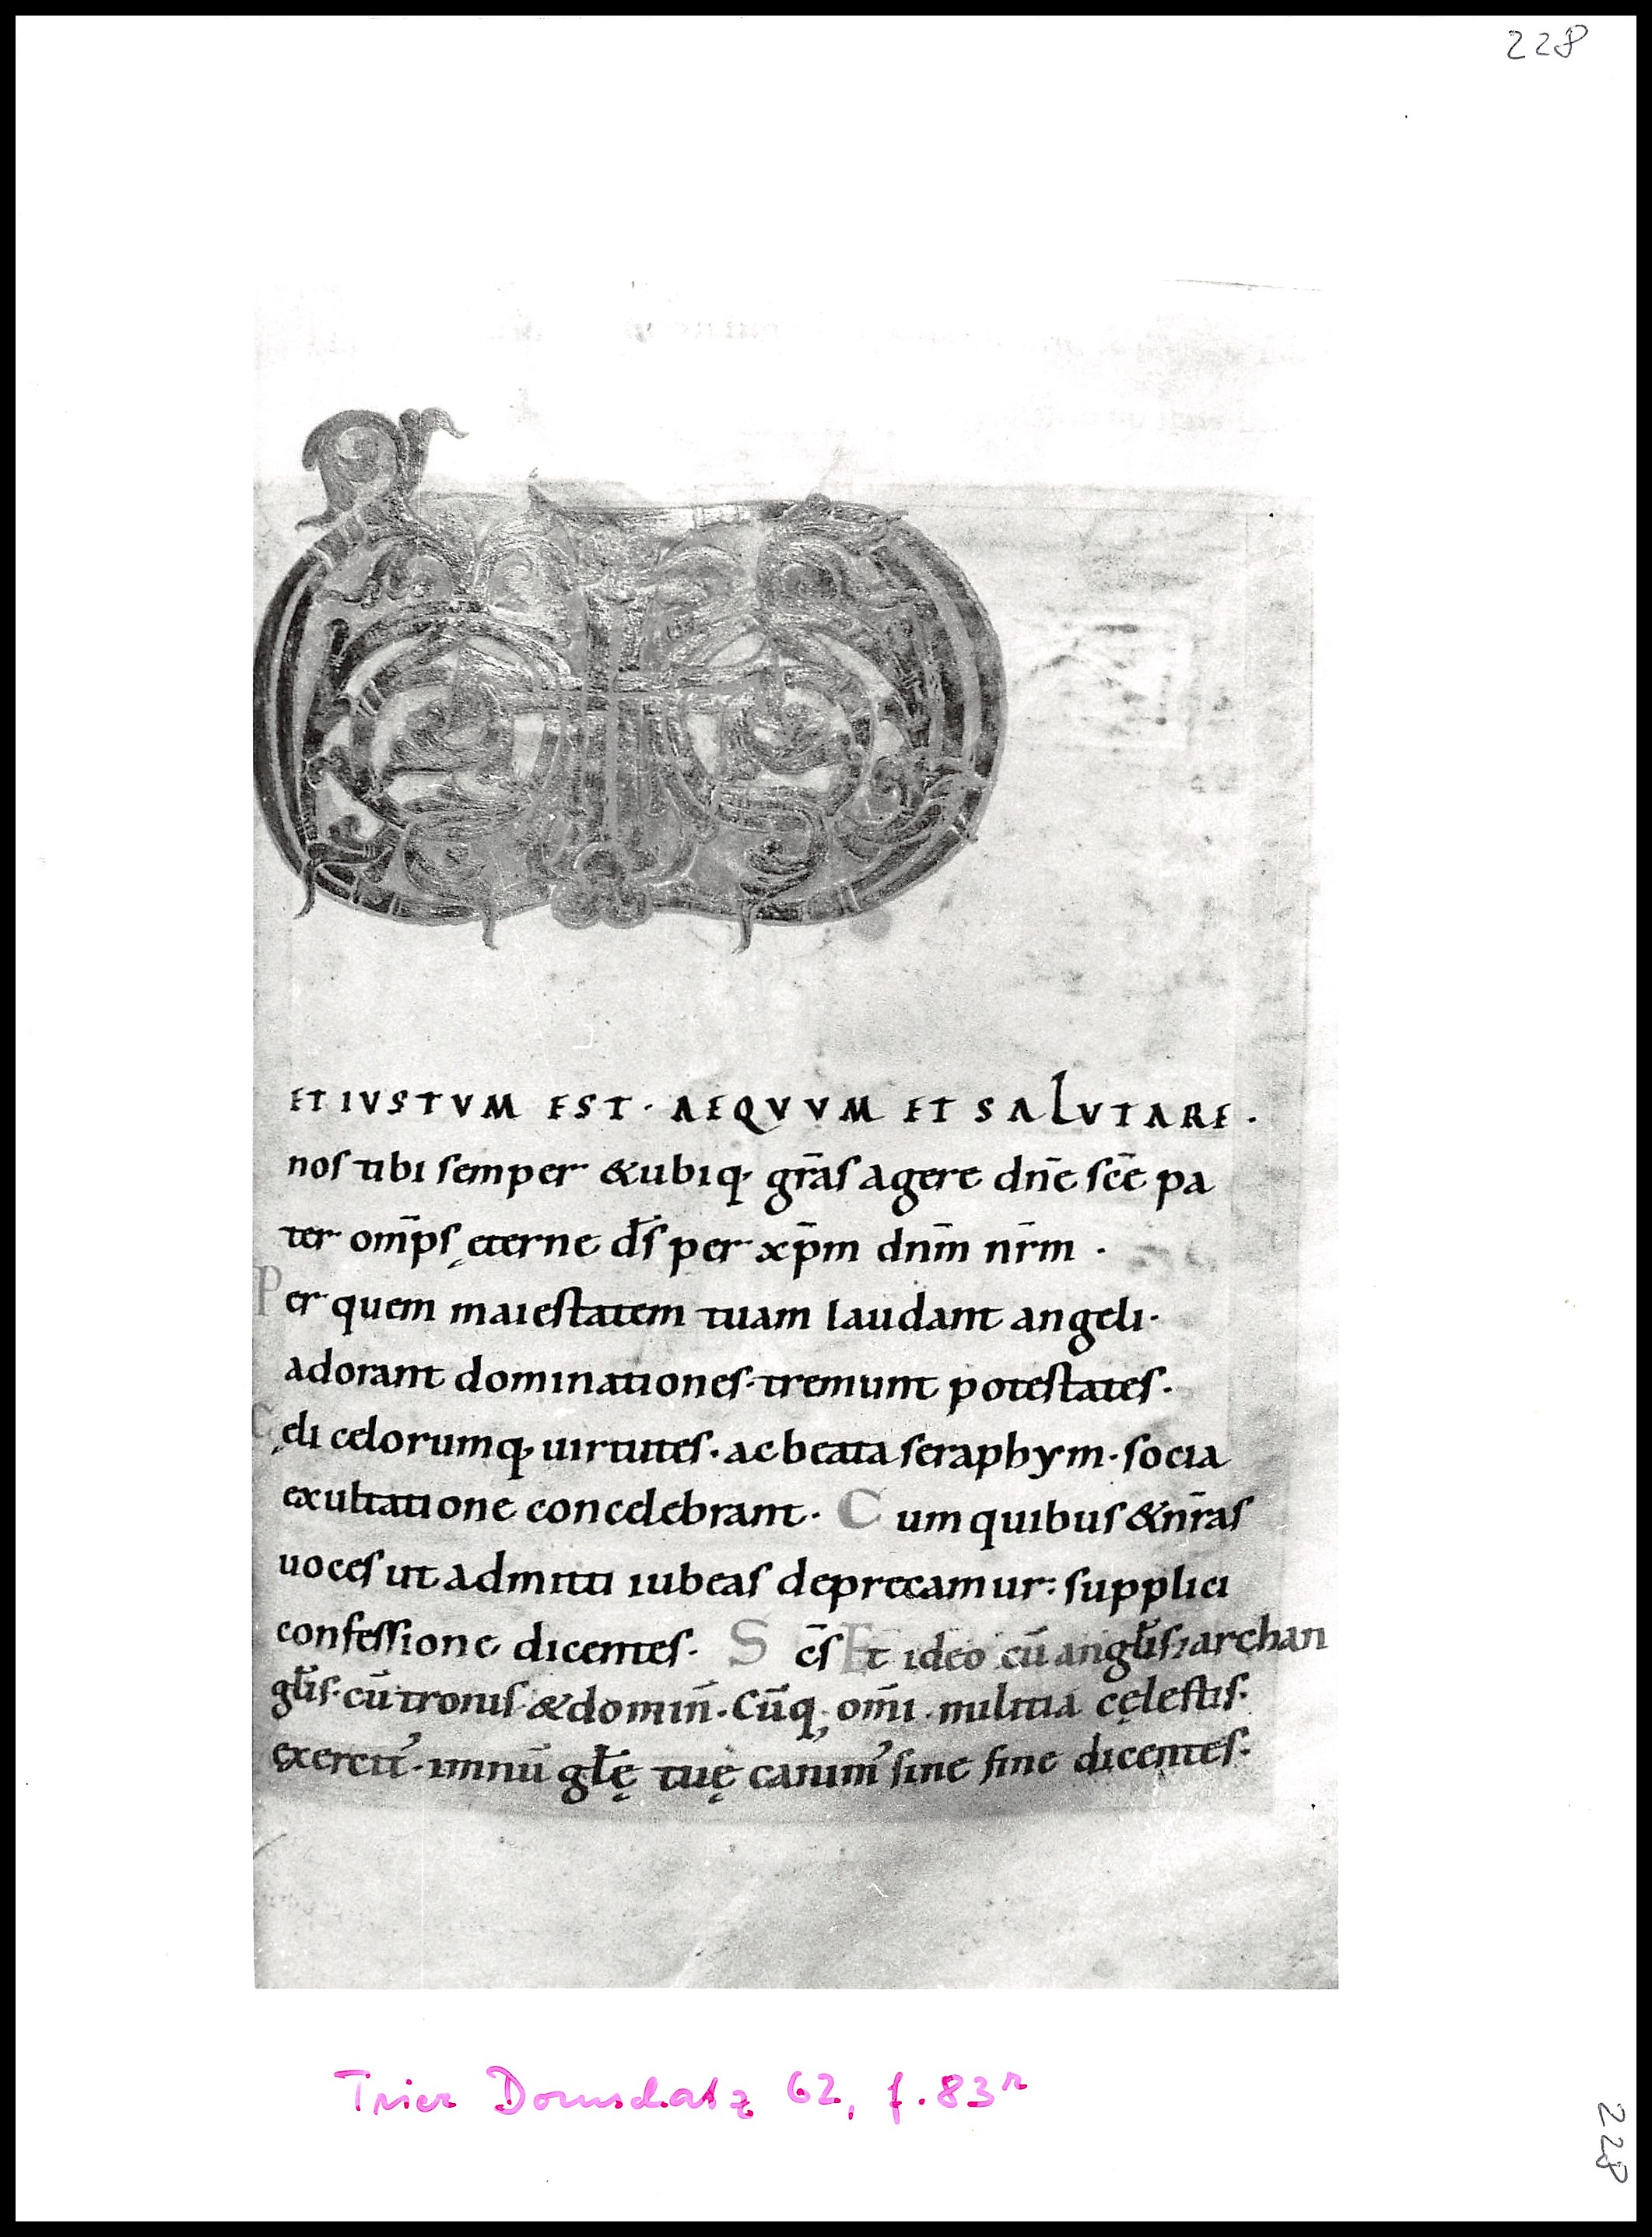 228
ET IVSTVM EST · AEQVVM ET SALVTARE ·
nos tibi semper & ubiq· gr̄as agere dn̄e sc̄e pa
ter om̄ps ęterne d̄s per xp̄m dn̄m nr̄m ·
Per quem maiestatem tuam laudant angeli·
adorant dominationes· tremunt potestates·
Cęli celorumq· uirtutes· ac beata seraphym· socia
exultatione concelebrant· Cum quibus & nr̄as
uoces ut admitti iubeas deprecamur: supplici
confessione dicentes· Sc̄s Et ideo cū angłis archan
głis· cū tronis & domin̄· Cūq; om̄i militia cęlestis·
exercit᾽· imnū głę tuę canim᾽ sine fine dicentes·
Trier Domschatz 62, f. 83r
228